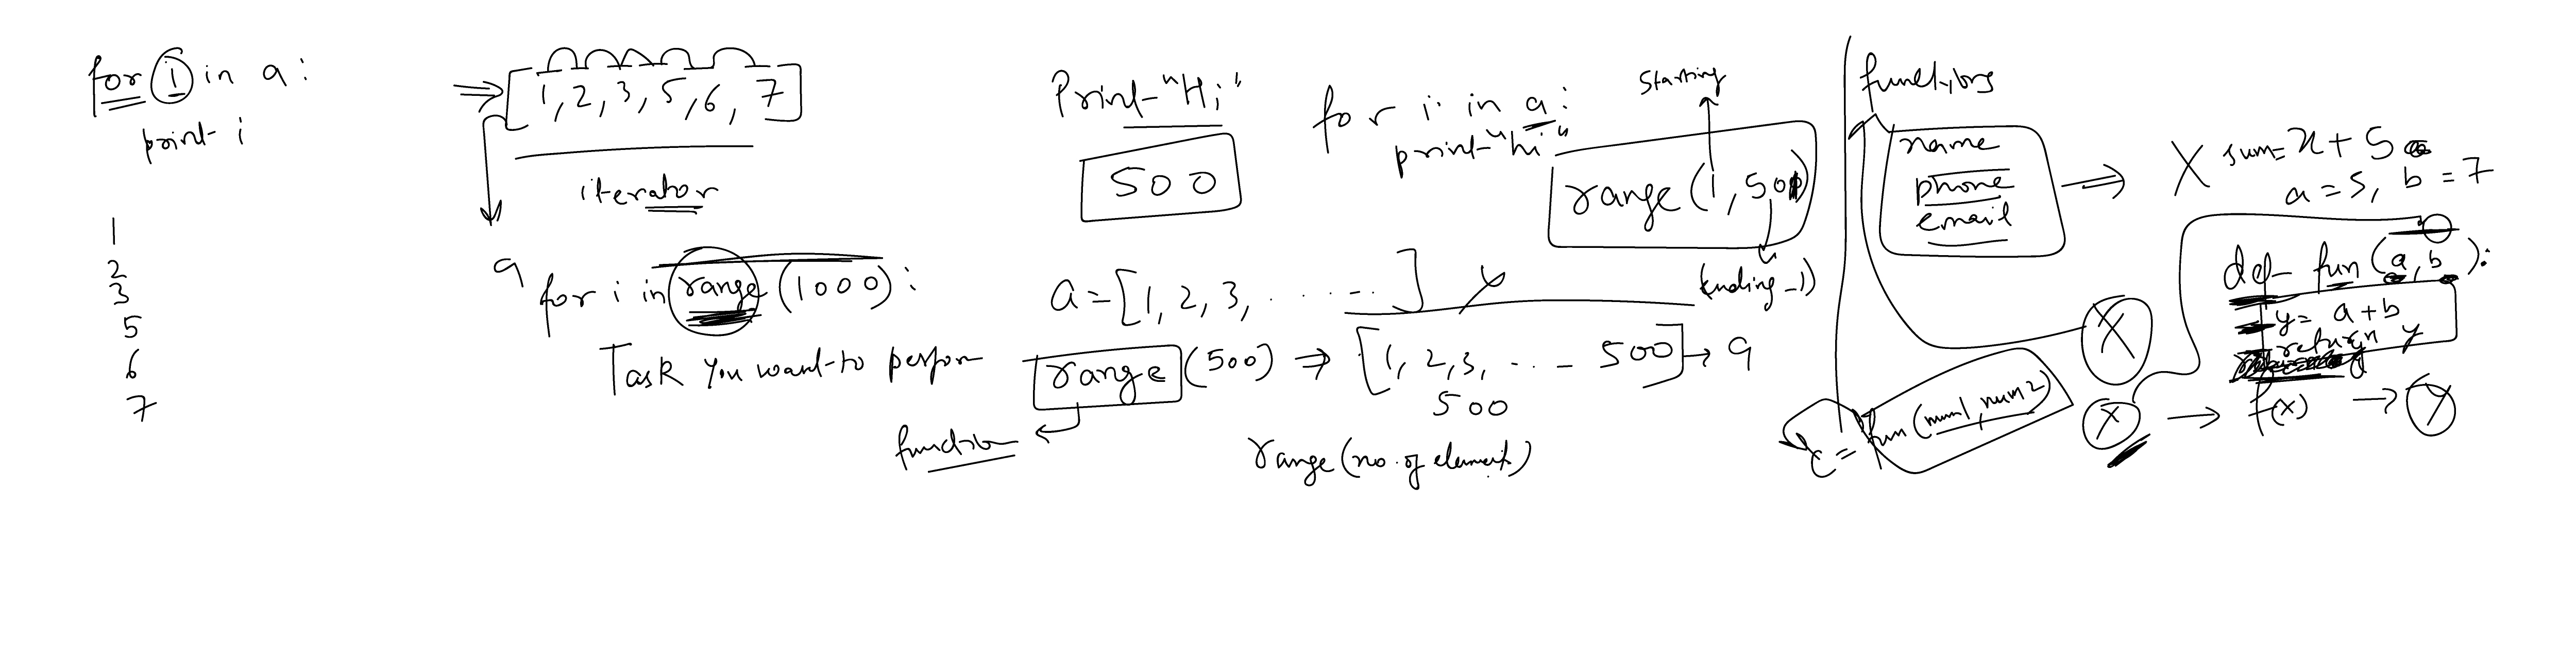 for i in a:
print i
1
2
3
5
6
7
[1, 2, 3, 5, 6, 7]
iterator
a
for i in range (1000):
Task you want to perform
Print "Hi"
500
for i in a:
print "hi"
a = [1, 2, 3, ......]
range (500) → [1, 2, 3, ... 500] → a
500
function
range (no. of element)
Starting
range (1, 501)
(ending -1)
functions
name
phone
email
X
sum = x + 5
a = 5, b = 7
def fun (a, b):
y = a + b
return y
X
c = fun (num1, num2)
X → f(x) → y